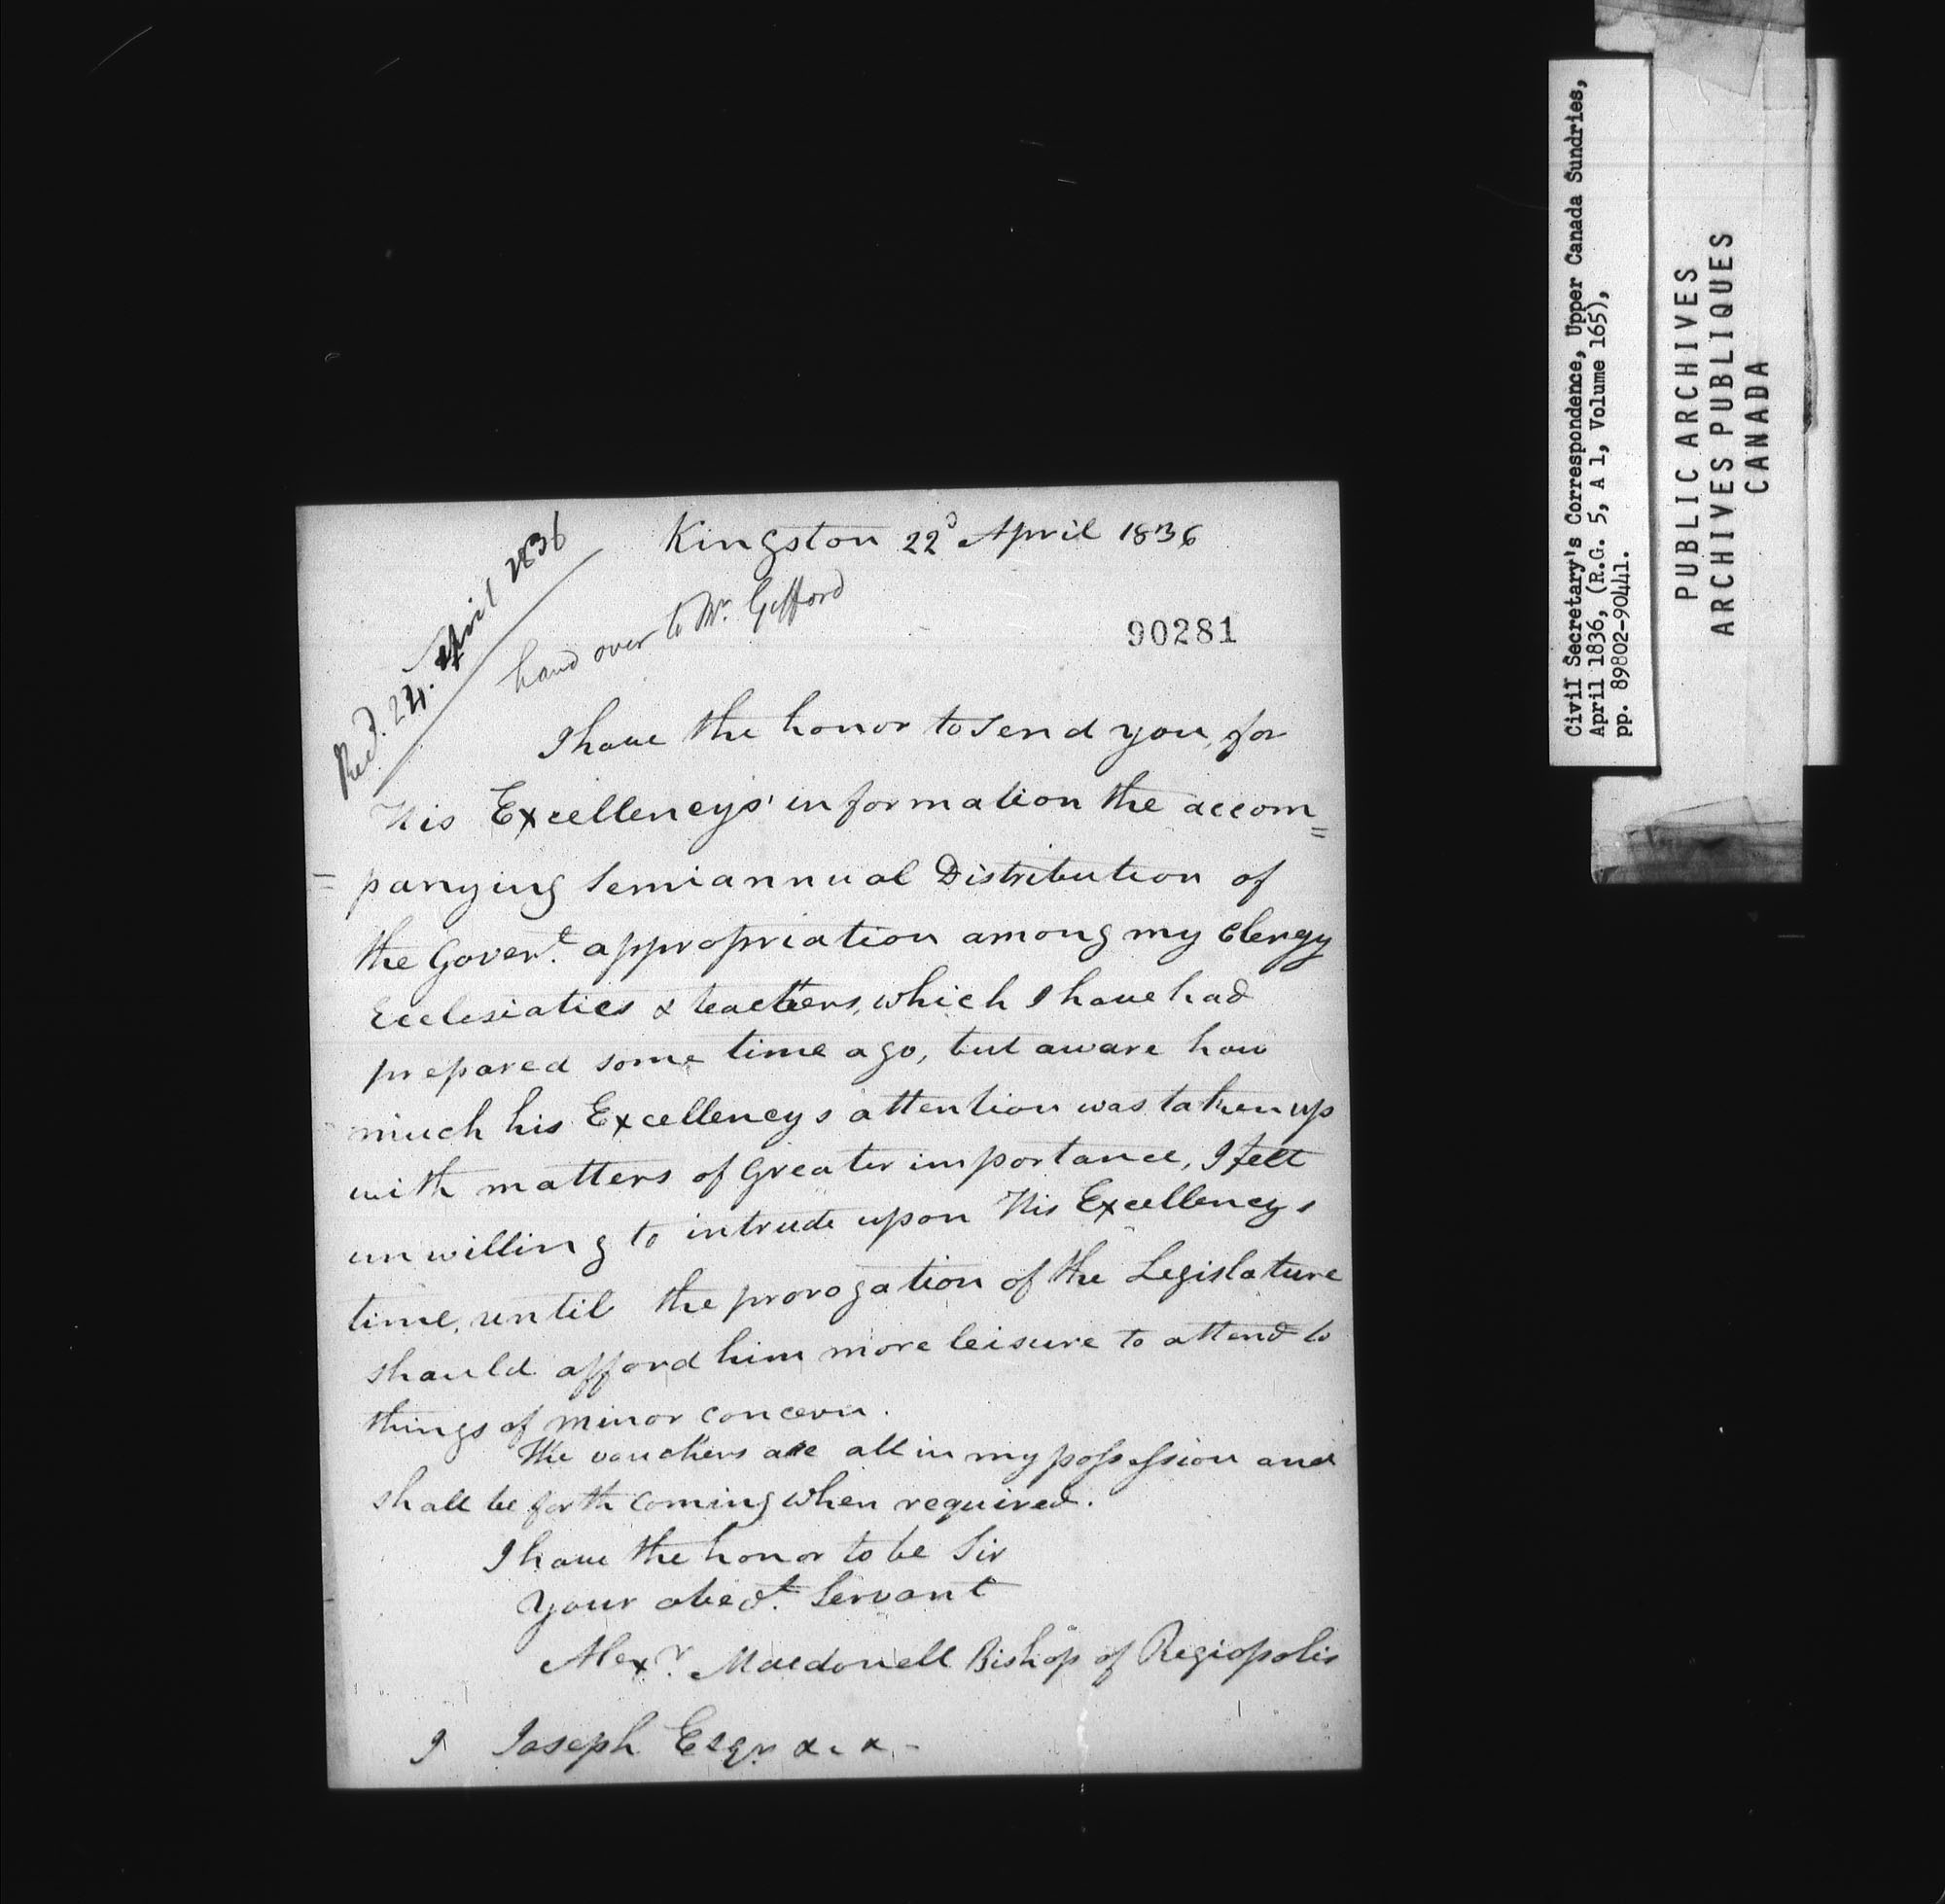 Kingston 22d April 1836
Recd. 24. April 1836
hand over to Mr. Gifford
90281
I have the honor to send you, for
His Excellencys' information the accom=
=panying Semiannual Distribution of
the Govert. appropriation among my Clergy
Ecclesiatics & teachers, which I have had
prepared some time ago, but aware how
much his Excellencys attention was taken up
with matters of greater importance, I felt
unwilling to intrude upon His Excellencys
time, until the prorogation of the Legislature
should afford him more leisure to attend to
things of minor concern.
The vouchers are all in my possession and
shall be forth coming when required.
I have the honor to be Sir
Your obedt. Servant
Alexr. Macdonell Bishop of Regiopolis
J Joseph Esqr &. &. -
Civil Secretary's Correspondence, Upper Canada Sundries,
April 1836, (R.G. 5, A 1, Volume 165),
pp. 89802-90441.
PUBLIC ARCHIVES
ARCHIVES PUBLIQUES
CANADA